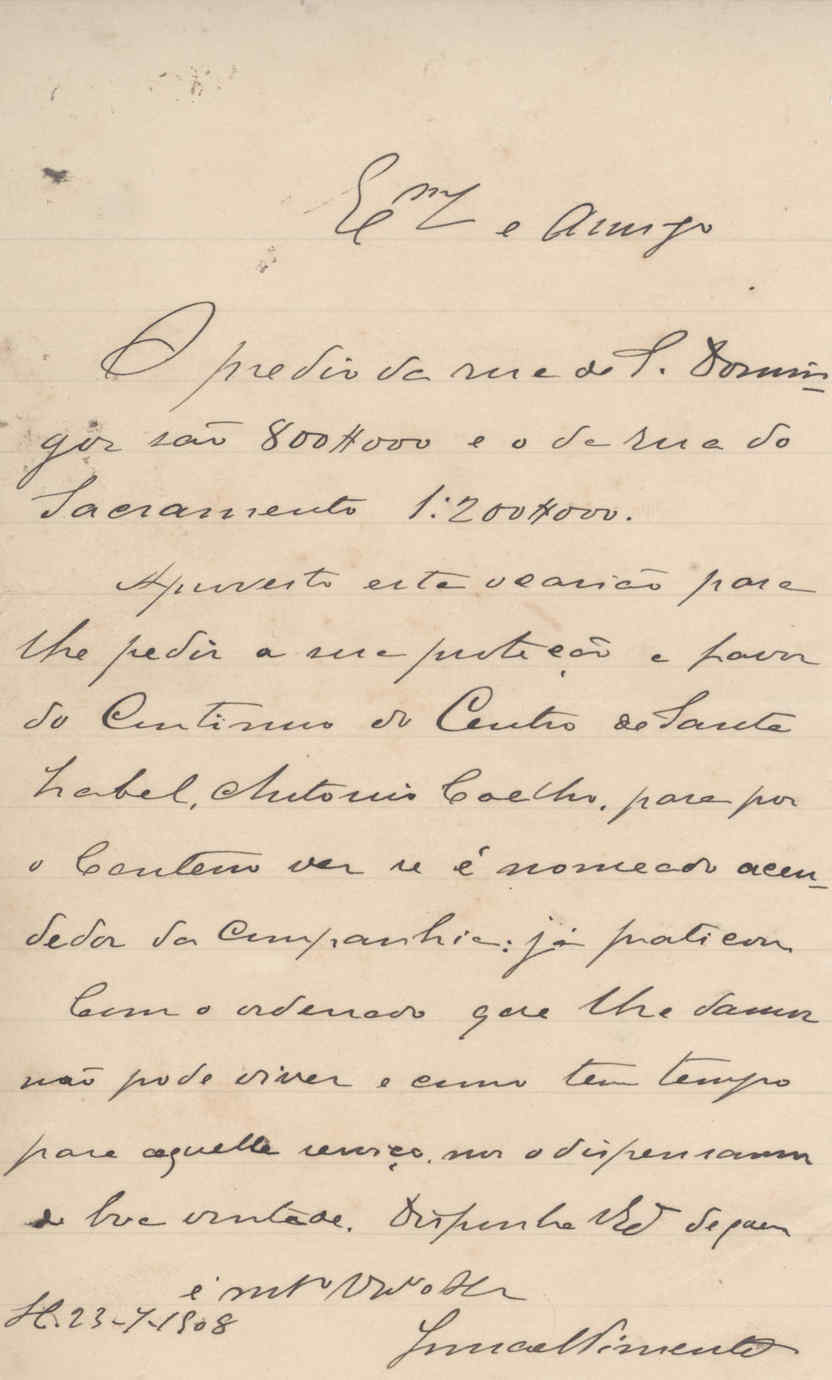 Exmº e Amigo
O predio da rua de S. Domin-
gos são 800$000 e o da rua do
Sacramento 1:200$000.
Aproveito esta ocasião para
lhe pedir a sua proteção a favor
do Continuo do Centro de Santa
Izabel, Antonio Coelho, para por
o Cantem ver se é nomeado acen-
dedor da Companhia: já praticou
Com o ordenado que lhe damos
não pode viver e como tem tempo
para aquelle serviço, nos o dispensamos
de boa vontade. Disponha VEª de quem
é mtº
23-7-1908
Pimentel